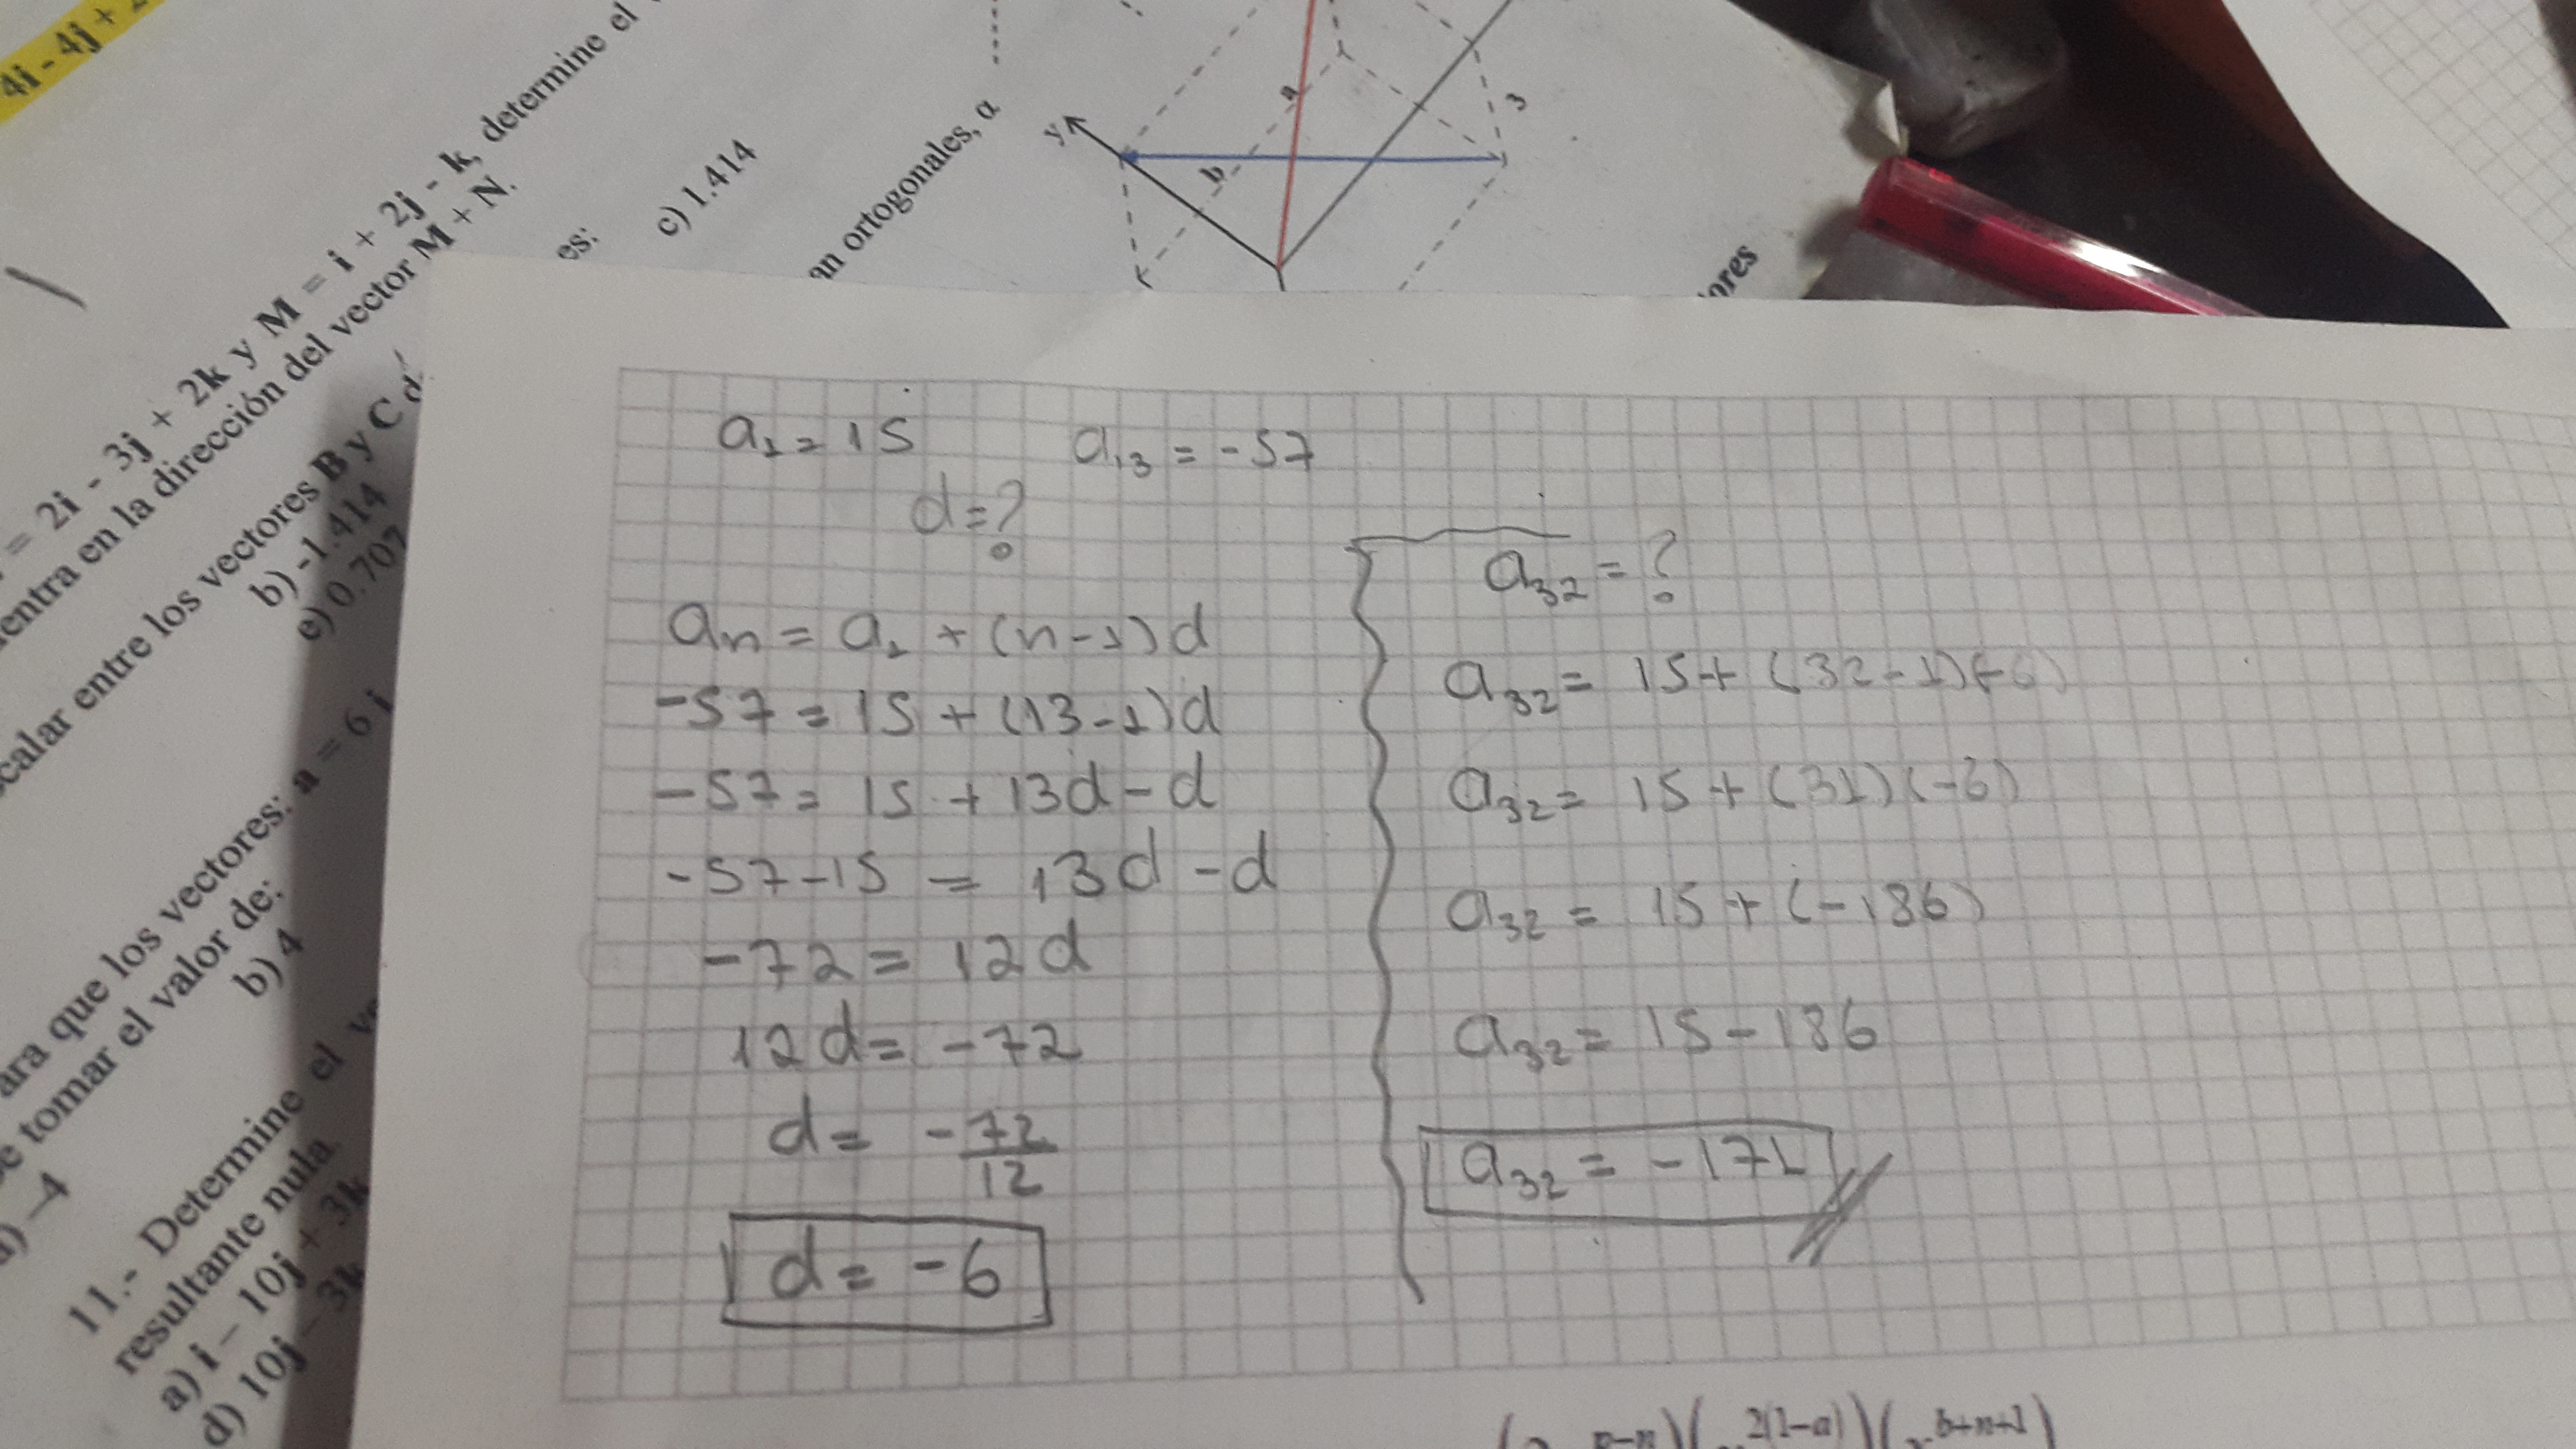 4i - 4j + 2
= 2i - 3j + 2k y M = i + 2j - k, determine el
entra en la dirección del vector M + N.
calar entre los vectores B y C
es:
b) -1.414
c) 1.414
e) 0.707
an ortogonales, α
ara que los vectores: a = 6 i
tomar el valor de:
b) 4
-4
11.- Determine el
resultante nula.
a) i - 10j + 3k
d) 10j - 3k
y
a
b
3
ores
a₁ = 15 a₁₃ = -57
d = ?
aₙ = a₁ + (n-1)d
-57 = 15 + (13-1)d
-57 = 15 + 13d - d
-57-15 = 13d - d
-72 = 12d
12d = -72
d = -72/12
d = -6
a₃₂ = ?
a₃₂ = 15 + (32-1)(-6)
a₃₂ = 15 + (31)(-6)
a₃₂ = 15 + (-186)
a₃₂ = 15 - 186
a₃₂ = -171
2(1-a) b+n+1